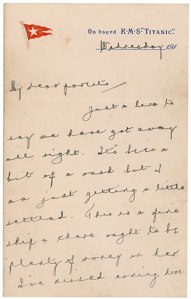 On board R·M·S·"TITANIC".
Wednesday 191
My dear parents
Just a line to
say we have got away
all right. It's been a
bit of a rush but I
am just getting a little
settled. This is a fine
ship & there ought to be
plenty of money in her
I've missed coming home